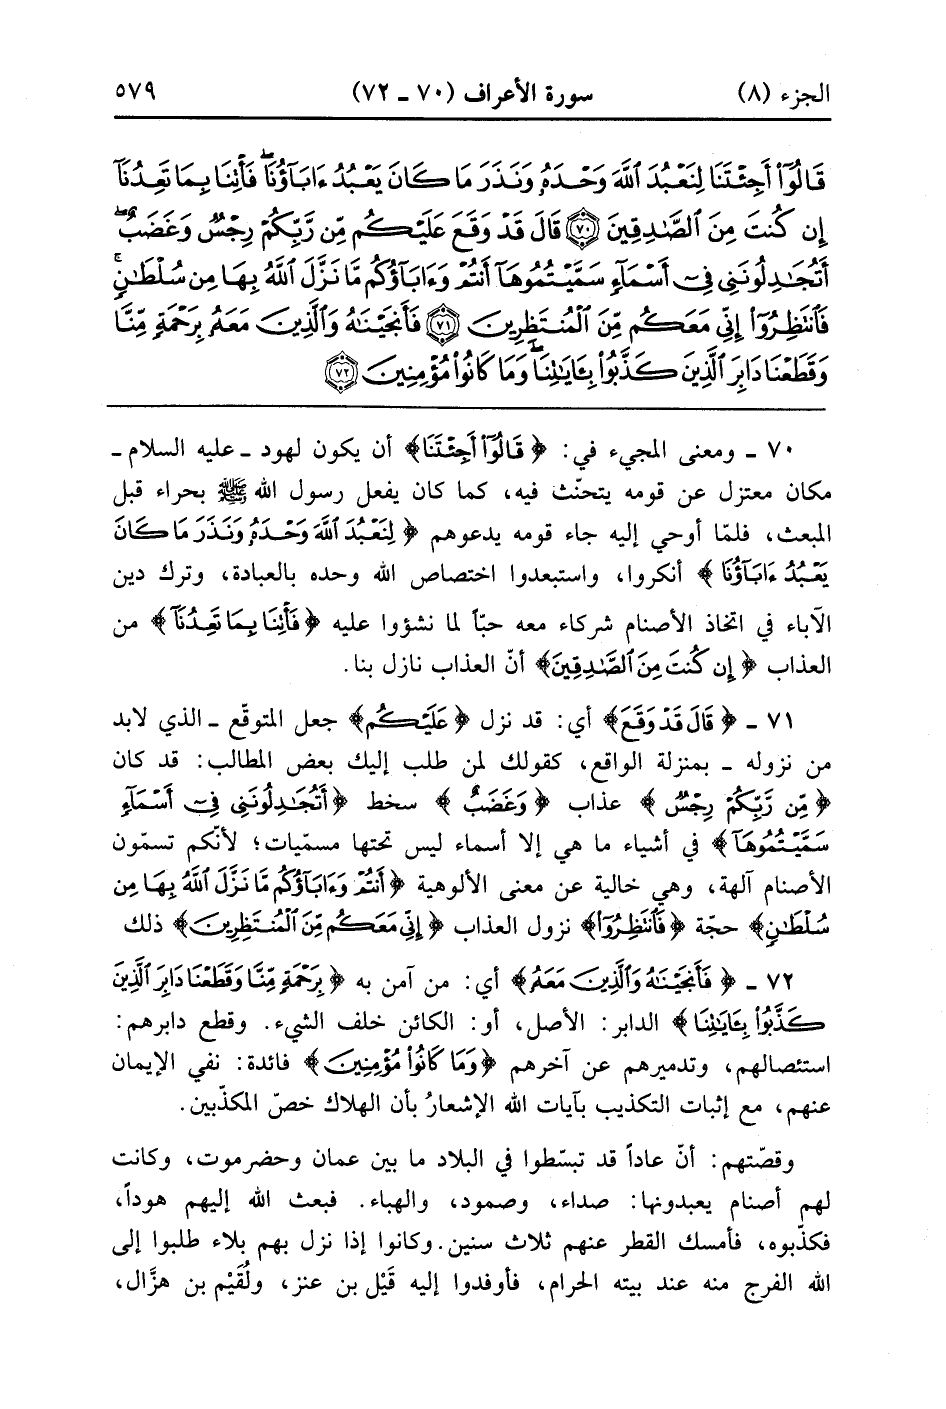 الجزء (٨) سورة الأعراف (٧٠ ـ ٧٢) ٥٧٩
قَالُوٓا۟ أَجِئْتَنَا لِنَعْبُدَ ٱللَّهَ وَحْدَهُۥ وَنَذَرَ مَا كَانَ يَعْبُدُ ءَابَآؤُنَا ۖ فَأْتِنَا بِمَا تَعِدُنَآ
إِن كُنتَ مِنَ ٱلصَّـٰدِقِينَ ﴿٧٠﴾ قَالَ قَدْ وَقَعَ عَلَيْكُم مِّن رَّبِّكُمْ رِجْسٌ وَغَضَبٌ ۖ
أَتُجَـٰدِلُونَنِى فِىٓ أَسْمَآءٍ سَمَّيْتُمُوهَآ أَنتُمْ وَءَابَآؤُكُم مَّا نَزَّلَ ٱللَّهُ بِهَا مِن سُلْطَـٰنٍ ۚ
فَٱنتَظِرُوٓا۟ إِنِّى مَعَكُم مِّنَ ٱلْمُنتَظِرِينَ ﴿٧١﴾ فَأَنجَيْنَـٰهُ وَٱلَّذِينَ مَعَهُۥ بِرَحْمَةٍ مِّنَّا
وَقَطَعْنَا دَابِرَ ٱلَّذِينَ كَذَّبُوا۟ بِـَٔايَـٰتِنَا ۖ وَمَا كَانُوا۟ مُؤْمِنِينَ ﴿٧٢﴾
٧٠ ـ ومعنى المجيء في: ﴿قَالُوٓا۟ أَجِئْتَنَا﴾ أن يكون لهود ـ عليه السلام ـ
مكان معتزل عن قومه يتحنّث فيه، كما كان يفعل رسول الله ﷺ بحراء قبل
المبعث، فلمّا أوحي إليه جاء قومه يدعوهم ﴿لِنَعْبُدَ ٱللَّهَ وَحْدَهُۥ وَنَذَرَ مَا كَانَ
يَعْبُدُ ءَابَآؤُنَا﴾ أنكروا، واستبعدوا اختصاص الله وحده بالعبادة، وترك دين
الآباء في اتخاذ الأصنام شركاء معه حبّاً لما نشؤوا عليه ﴿فَأْتِنَا بِمَا تَعِدُنَآ﴾ من
العذاب ﴿إِن كُنتَ مِنَ ٱلصَّـٰدِقِينَ﴾ أنّ العذاب نازل بنا.
٧١ ـ ﴿قَالَ قَدْ وَقَعَ﴾ أي: قد نزل ﴿عَلَيْكُم﴾ جعل المتوقّع ـ الذي لابد
من نزوله ـ بمنزلة الواقع، كقولك لمن طلب إليك بعض المطالب: قد كان
﴿مِّن رَّبِّكُمْ رِجْسٌ﴾ عذاب ﴿وَغَضَبٌ﴾ سخط ﴿أَتُجَـٰدِلُونَنِى فِىٓ أَسْمَآءٍ
سَمَّيْتُمُوهَآ﴾ في أشياء ما هي إلا أسماء ليس تحتها مسمّيات؛ لأنّكم تسمّون
الأصنام آلهة، وهي خالية عن معنى الألوهية ﴿أَنتُمْ وَءَابَآؤُكُم مَّا نَزَّلَ ٱللَّهُ بِهَا مِن
سُلْطَـٰنٍ﴾ حجّة ﴿فَٱنتَظِرُوٓا۟﴾ نزول العذاب ﴿إِنِّى مَعَكُم مِّنَ ٱلْمُنتَظِرِينَ﴾ ذلك
٧٢ ـ ﴿فَأَنجَيْنَـٰهُ وَٱلَّذِينَ مَعَهُۥ﴾ أي: من آمن به ﴿بِرَحْمَةٍ مِّنَّا وَقَطَعْنَا دَابِرَ ٱلَّذِينَ
كَذَّبُوا۟ بِـَٔايَـٰتِنَا﴾ الدابر: الأصل، أو: الكائن خلف الشيء. وقطع دابرهم:
استئصالهم، وتدميرهم عن آخرهم ﴿وَمَا كَانُوا۟ مُؤْمِنِينَ﴾ فائدة: نفي الإيمان
عنهم، مع إثبات التكذيب بآيات الله الإشعارُ بأن الهلاك خصّ المكذّبين.
وقصّتهم: أنّ عاداً قد تبسّطوا في البلاد ما بين عمان وحضرموت، وكانت
لهم أصنام يعبدونها: صداء، وصمود، والهباء. فبعث الله إليهم هوداً،
فكذّبوه، فأمسك القطر عنهم ثلاث سنين. وكانوا إذا نزل بهم بلاء طلبوا إلى
الله الفرج منه عند بيته الحرام، فأوفدوا إليه قَيْل بن عنز، ولُقَيْم بن هزَّال،